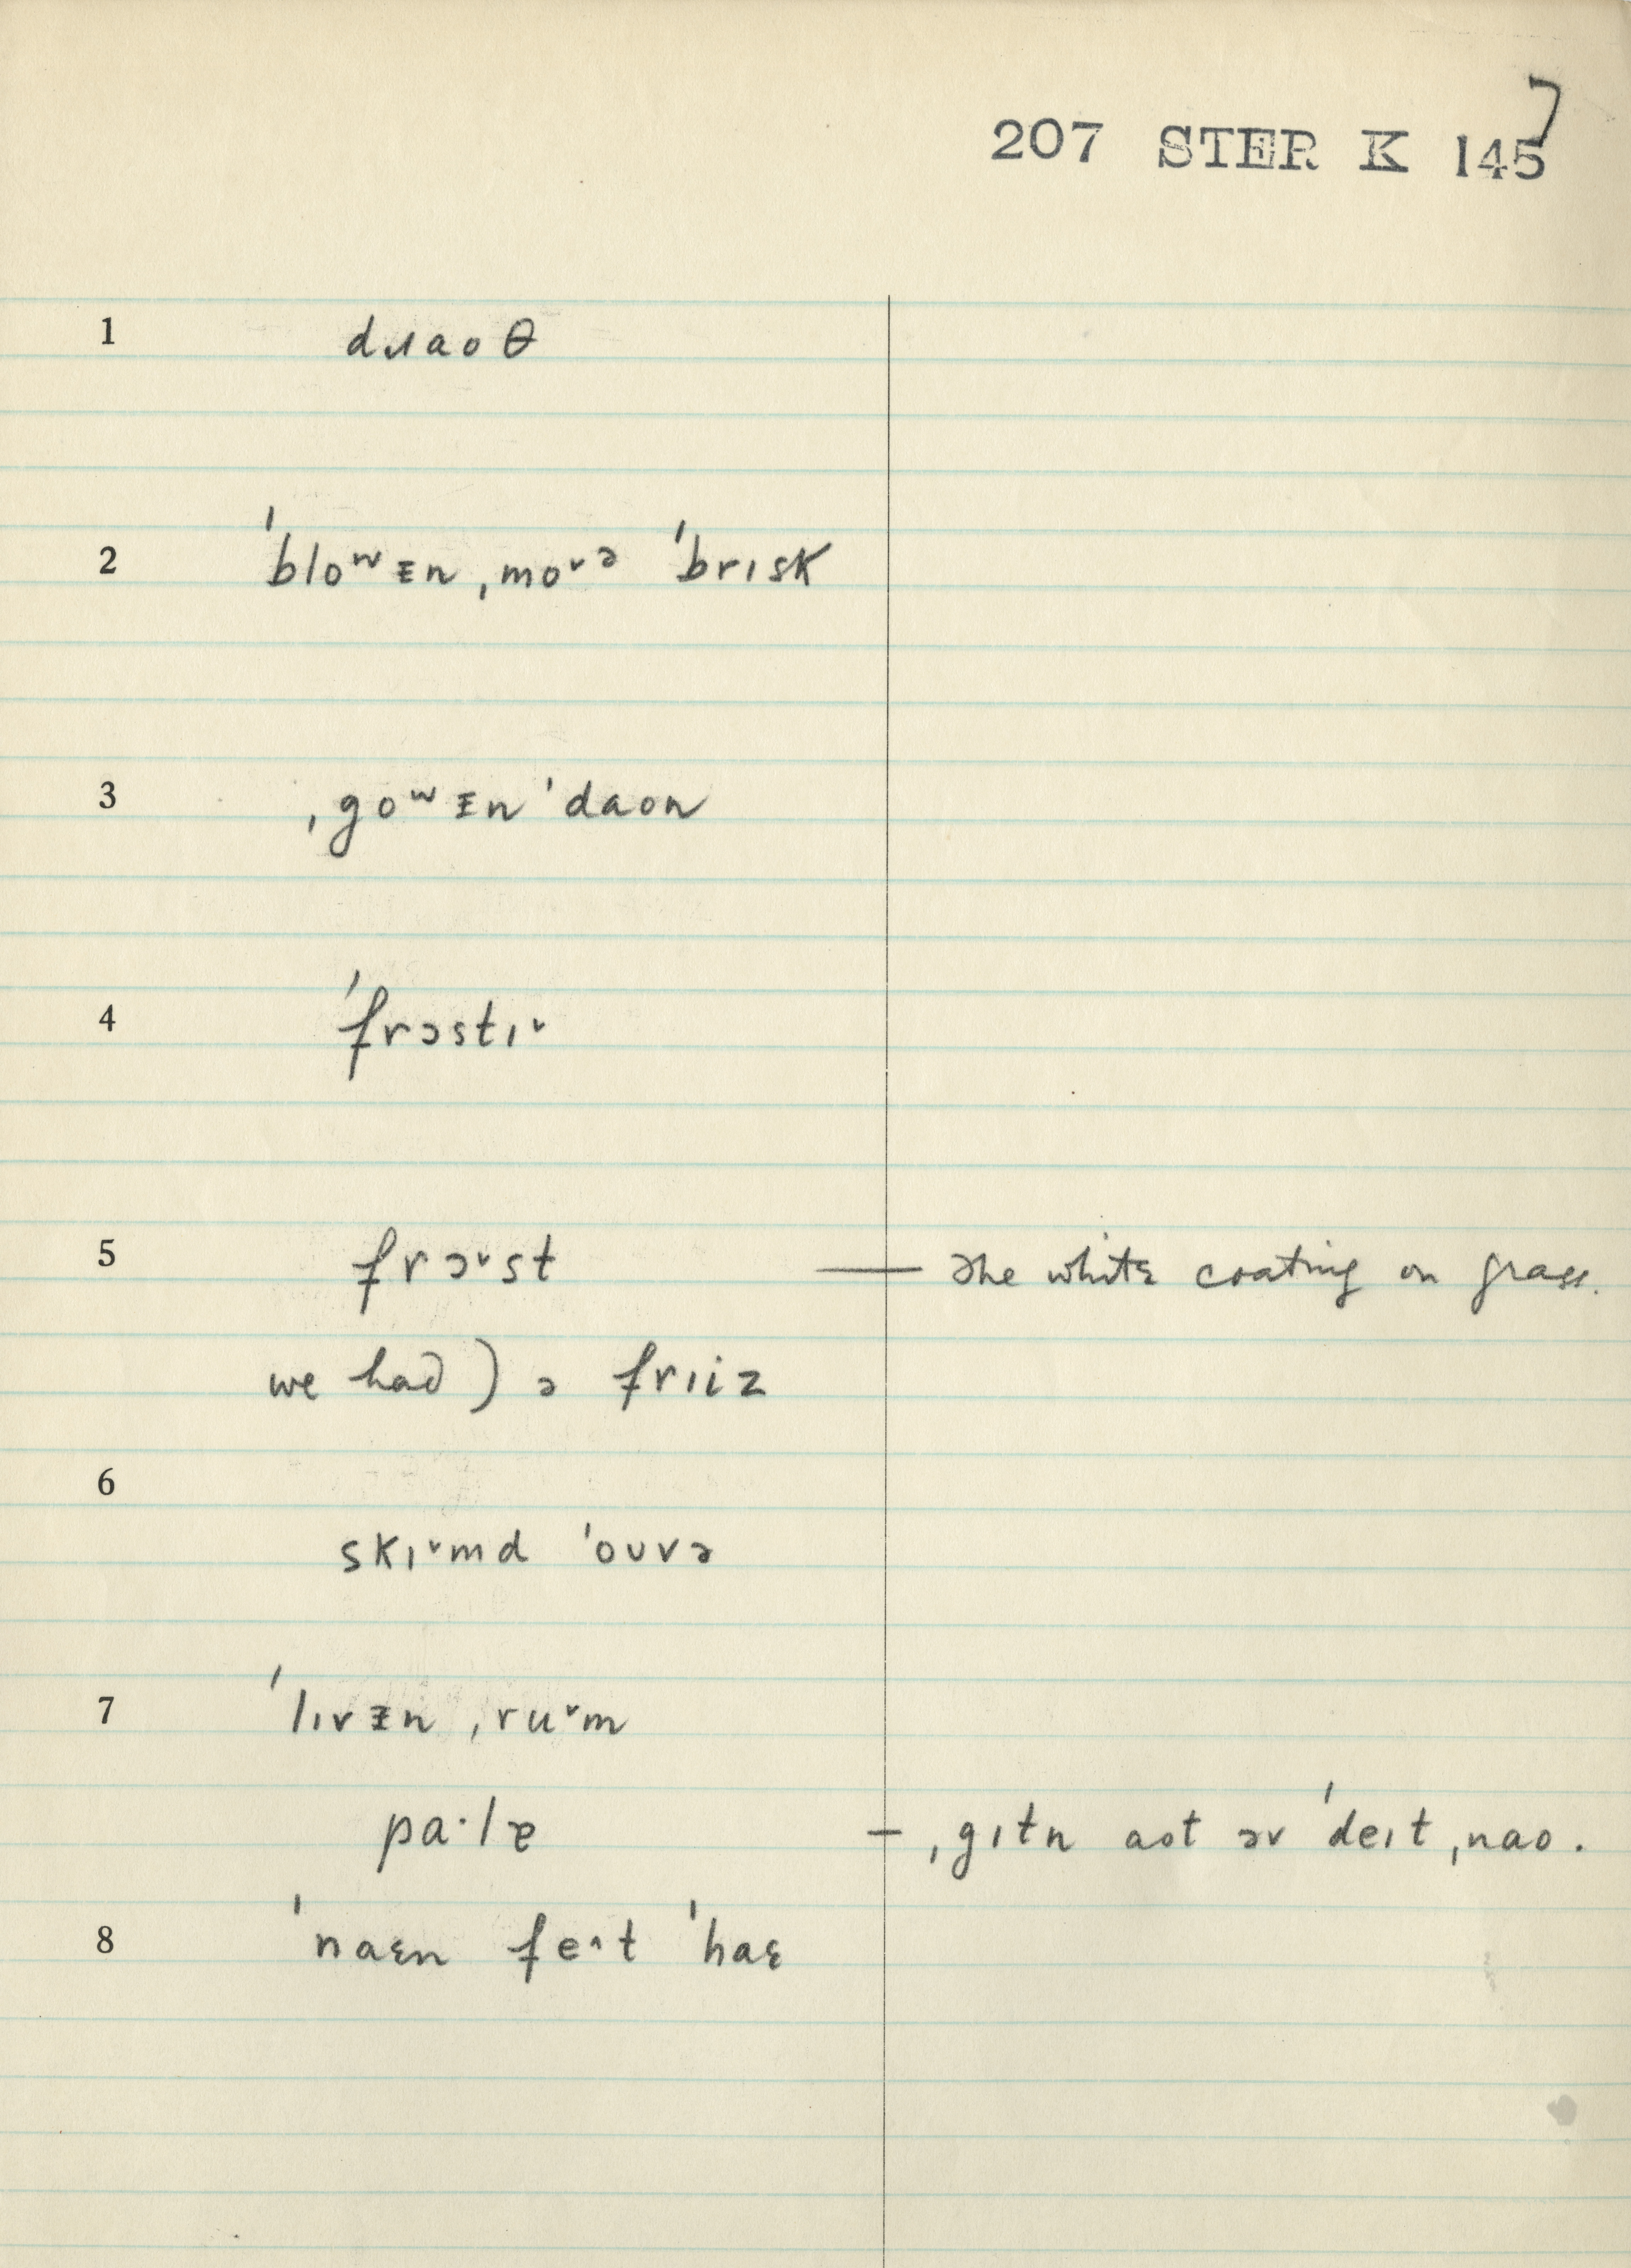 7
207 STER K 145
1 dɹaoθ
2 ˈbloʷᵻn ˌmoˇə ˈbrɪsk
3 ˌgoʷᵻn ˈdaon
4 ˈfrɔstɪˇ
5 frɔˇst — The white coating on grass.
we had) ə frɪiz
6
skɪˇmd ˈouvə
7 ˈlɪvᵻn ˌruˇm
pa·lɚ — ˌgɪtn aot əv ˈdeɪt ˌnao.
8 ˈnaɛn feˆt ˈhaɛ